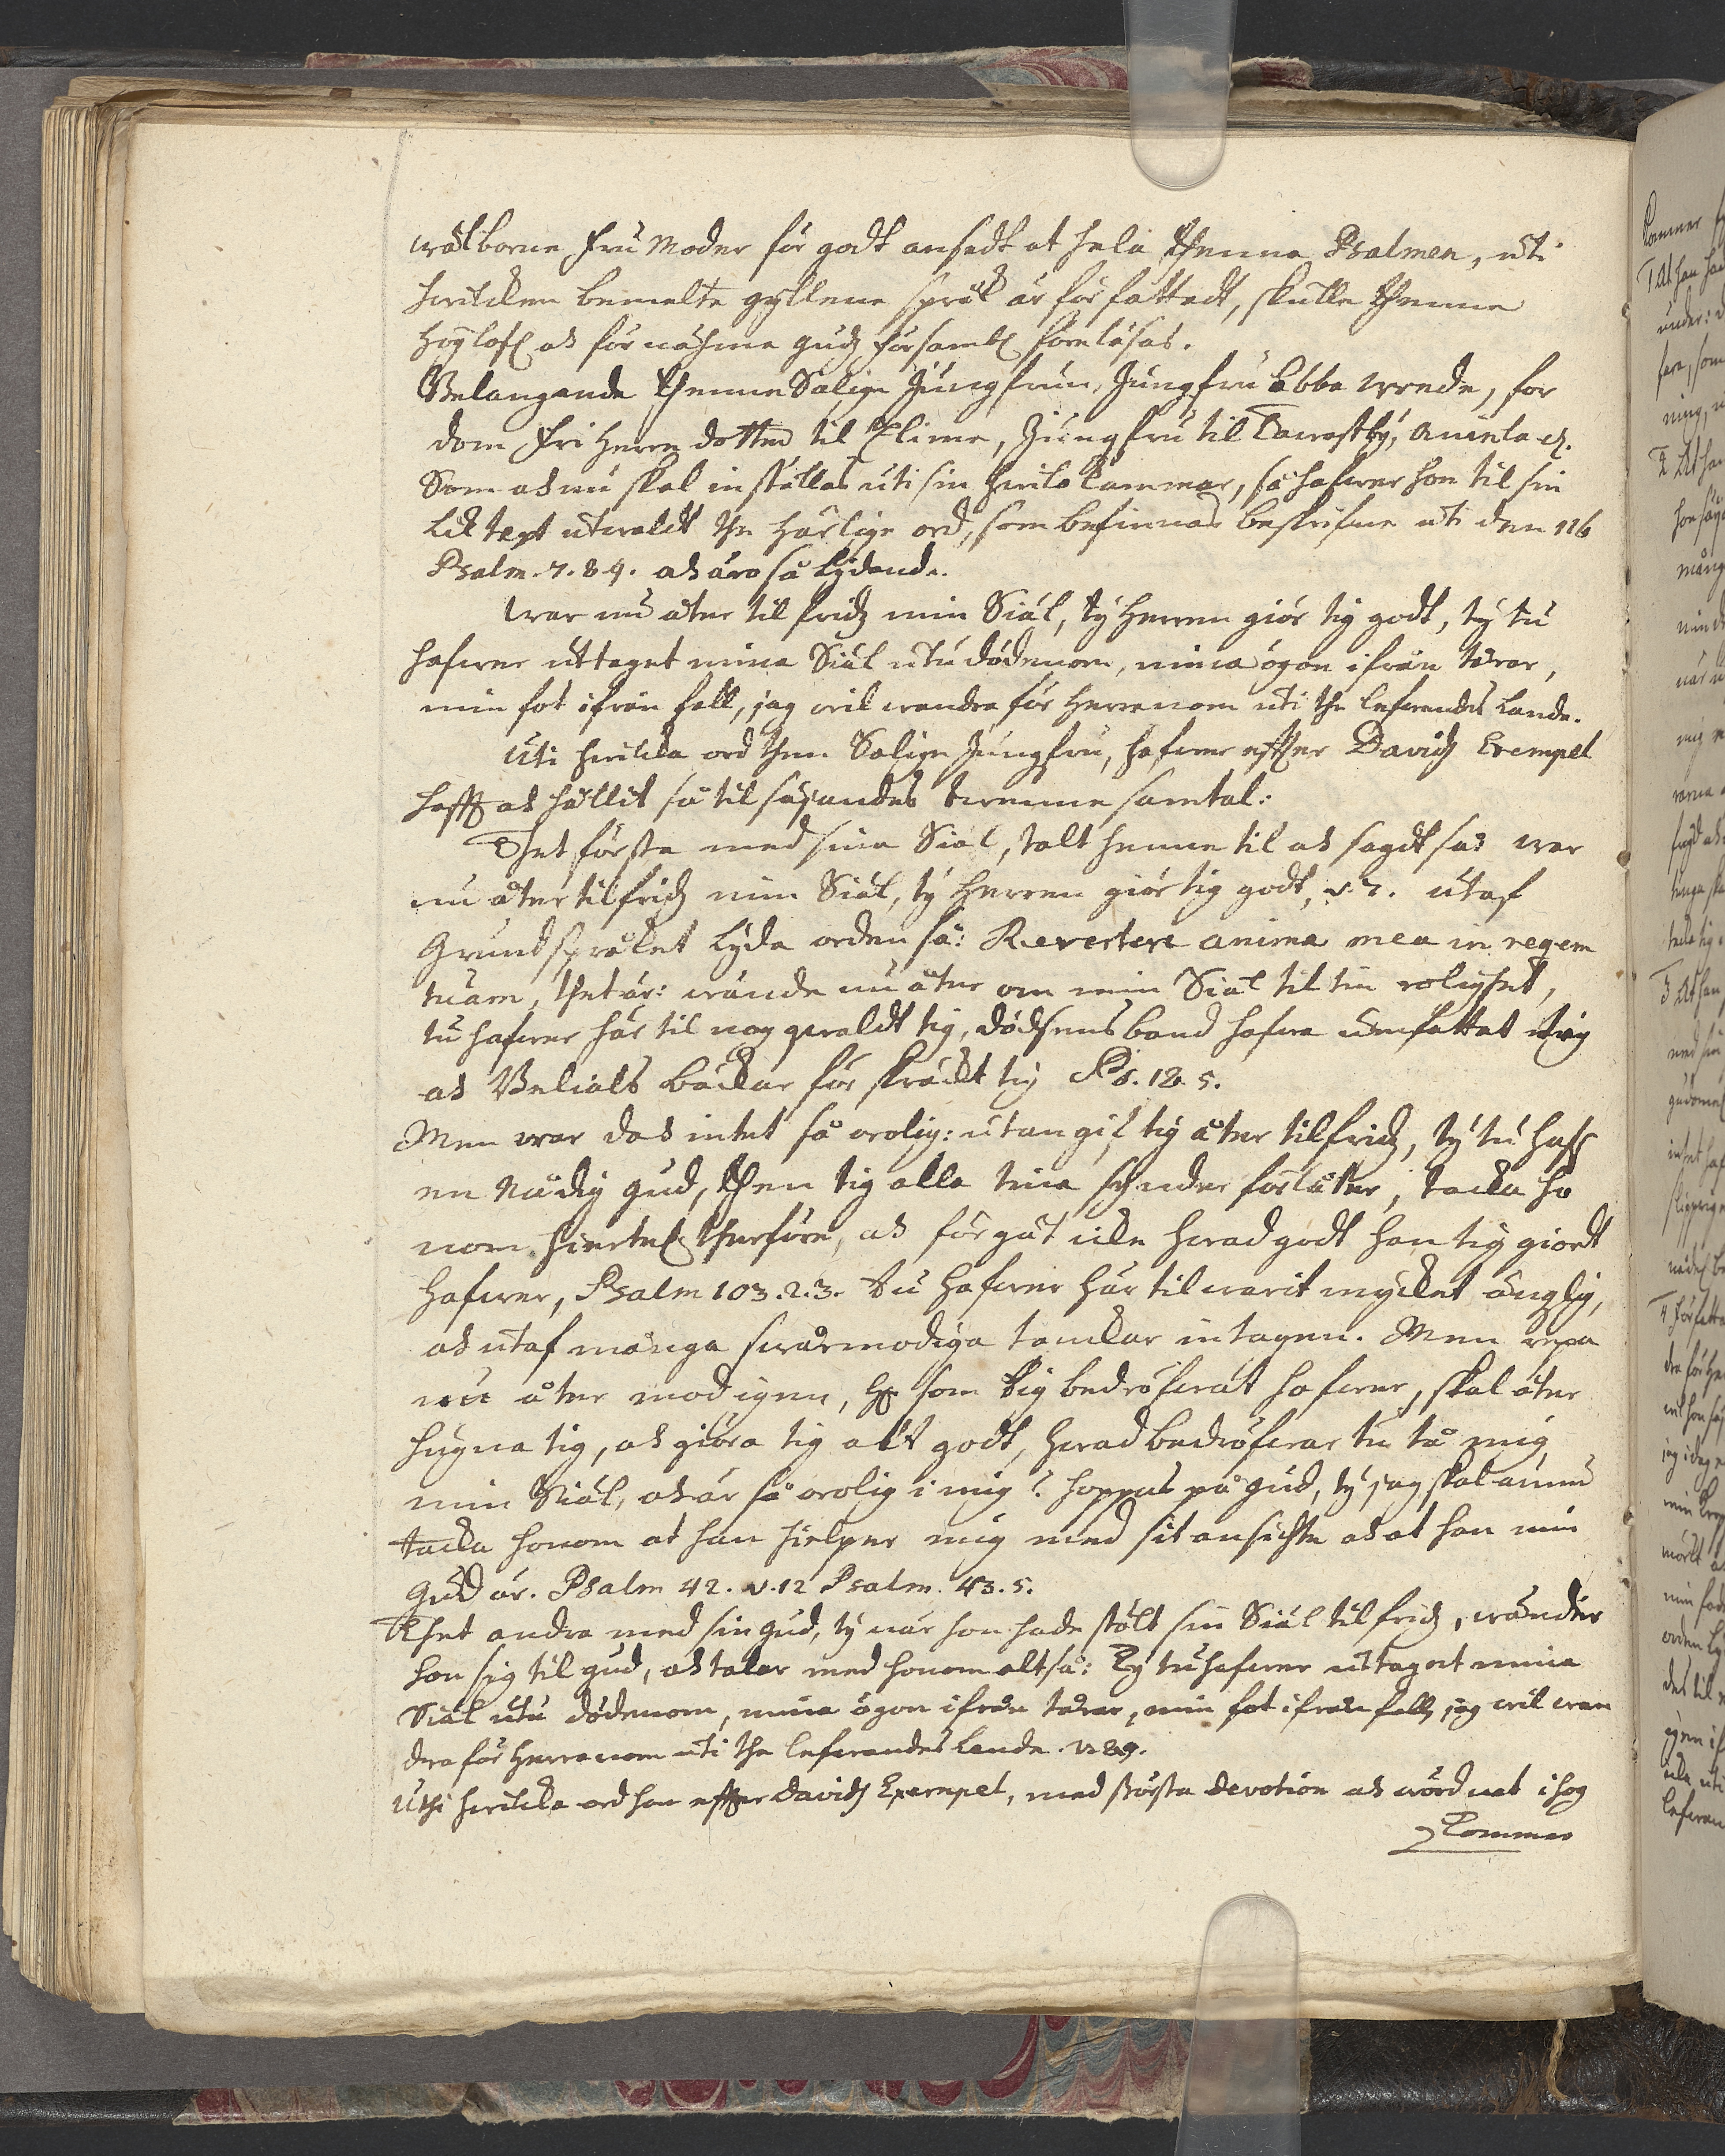 wälborne Fru Moder för godt ansedt at hela thenna Psalmen, uti
hwilcken bemelte gyllene språk är författadt, skulle thenne
Höylofl och förnähma Gudz försambl föreläsas.
Belangande thenne Salige Jungfrun, Jungfru Ebba Wrede, for
dom Fri Herre dotter til Elime, Jungfru til Tawastby, Aminla
Som och nu skal inställas uti sin hwilo Cammar, så hafwer hon til sin
Lik text utwaldt the härlige ord, som befinnas beskrifne uti den 116
Psalm. 7. 8. 9. och äro så lydande.
War nu åter til fridz min Siäl, ty Herren giör tig godt, ty tu
hafwer uttaget mina Siäl utu dödenom, mina ögon ifrån tårar,
min fot ifrån fall, jag wil wandra för Herranom uti the lefwandes Lande.
Uti hwilcka ord then Salige Jungfru, hafwer effter Davidz Exempel
haff och hållit så til säijandes twenne samtal:
Thet första med sina Siäl, talt henne til och sagdt så: war
nu åter til fridz min Siäl, ty Herren giör tig godt, v. 7. utaf
Grundspråket lyda orden så: Revertere anima mea in reqem
tuam, thet är: wände nu åter om min Siäl til tin rolighet,
tu hafwer här til nog qwaldt tig, dödsens band hafwa omfattat tig
och Belials bäckar förskräckt tig Ps. 18. 5.
Men war doch intet så orolig: utan gif tig åter til fridz, ty tu haff
en Nådig Gud, then tig alla tina synder förlåter, tacka ho
nom hiertel therföre, och förgät icke hwad godt han tig giordt
hafwer, Psalm 103. 2. 3. Tu hafwer här til warit mycket änglig,
och utaf många swårmodiga tanckar intagen. Men repa
nu åter mod igen, som tig bedröfwat hafwer, skal åter
hugna tig, och giöra tig alt godt, hwad bedröfwar tu tå mig
min Siäl, och är så orolig i mig? hoppas på Gud, ty jag skal ännu
tacka honom at han hielper mig med sit ansichte och at han min
Gud är. Psalm 42. v. 12 Psalm. 43. 5.
Thet andra med sin Gud, ty när hon hade stält sin Siäl til fridz, wänder
hon sig til Gud, och talar med honom altså: Ty tu hafwer uttaget mina
Siäl utu dödenom, mina ögon ifrån tårar, min fot ifrån fall, jag wil wan
dra för Herranom uti the lefwandes Lande. v. 8. 9.
Uthi hwilcka ord hon effter Davidz Exempel, med största Devotion och wördnat ihog
Kommer